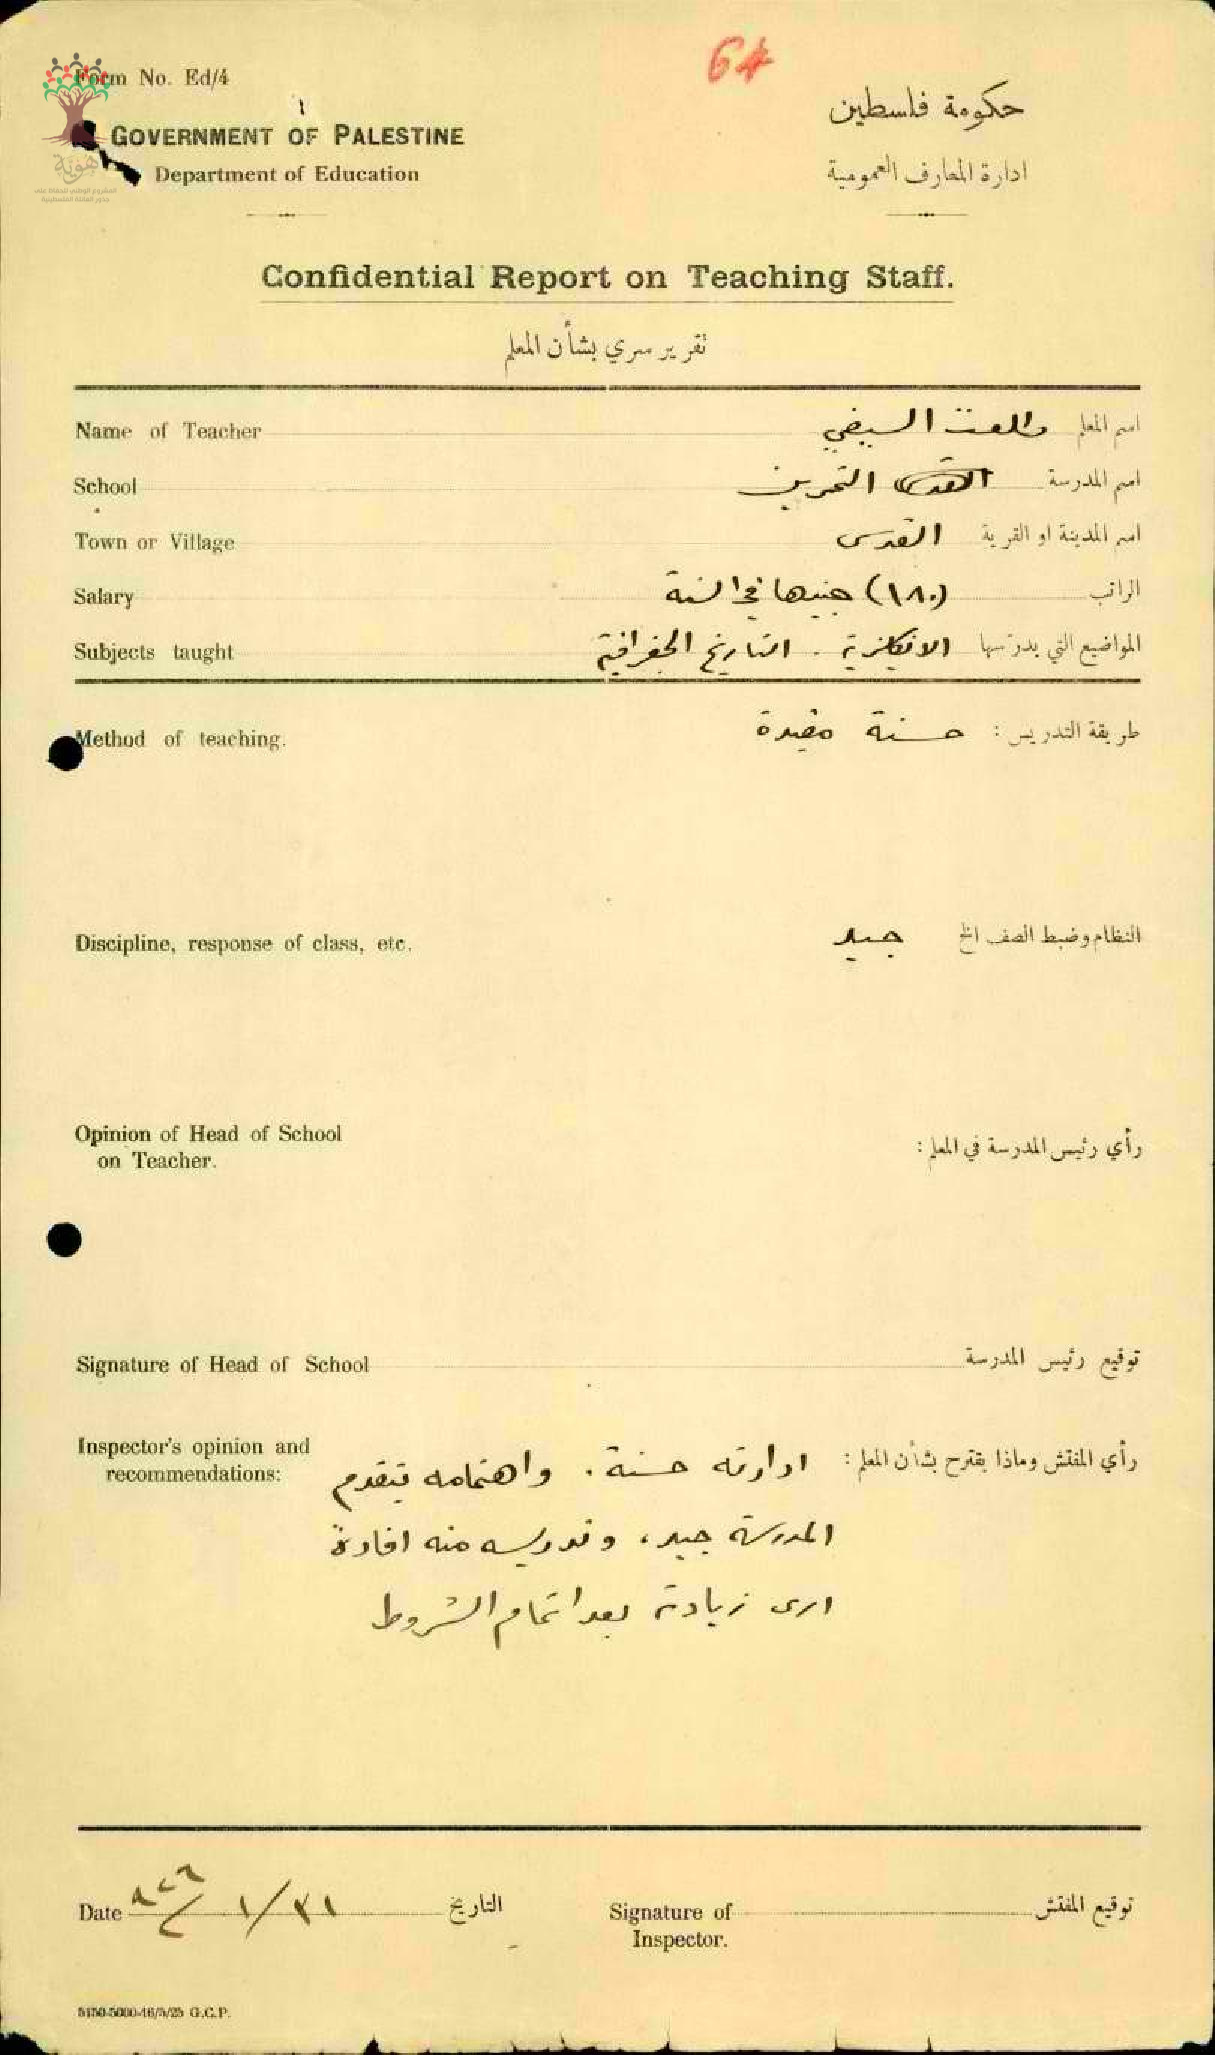 Form No. Ed/4
6
GOVERNMENT OF PALESTINE
Department of Education
حكومة فلسطين
ادارة المعارف العمومية
هوية
المشروع الوطني للحفاظ على
جذور العائلة الفلسطينية
Confidential Report on Teaching Staff.
تقرير سري بشأن المعلم
Name of Teacher طلعت السيفي اسم المعلم
School القدس التمرين اسم المدرسة
Town or Village القدس اسم المدينة او القرية
Salary (١٨٠) جنيها في السنة الراتب
Subjects taught الانكليزية . التاريخ الجغرافية المواضيع التي يدرسها
Method of teaching. طريقة التدريس : حسنة مفيدة
Discipline, response of class, etc. النظام وضبط الصف الخ جيد
Opinion of Head of School
on Teacher.
رأي رئيس المدرسة في المعلم :
Signature of Head of School توقيع رئيس المدرسة
Inspector's opinion and
recommendations:
رأي المفتش وماذا يقترح بشأن المعلم : ادارته حسنة . واهتمامه بتقدم
المدرسة جيد ، وتدريسه منه افادة
ارى زيادته بعد اتمام الشروط
Date ٣١/١/٩٢٦ التاريخ
Signature of
Inspector.
توقيع المفتش
5150-5000-16/5/25 G.C.P.